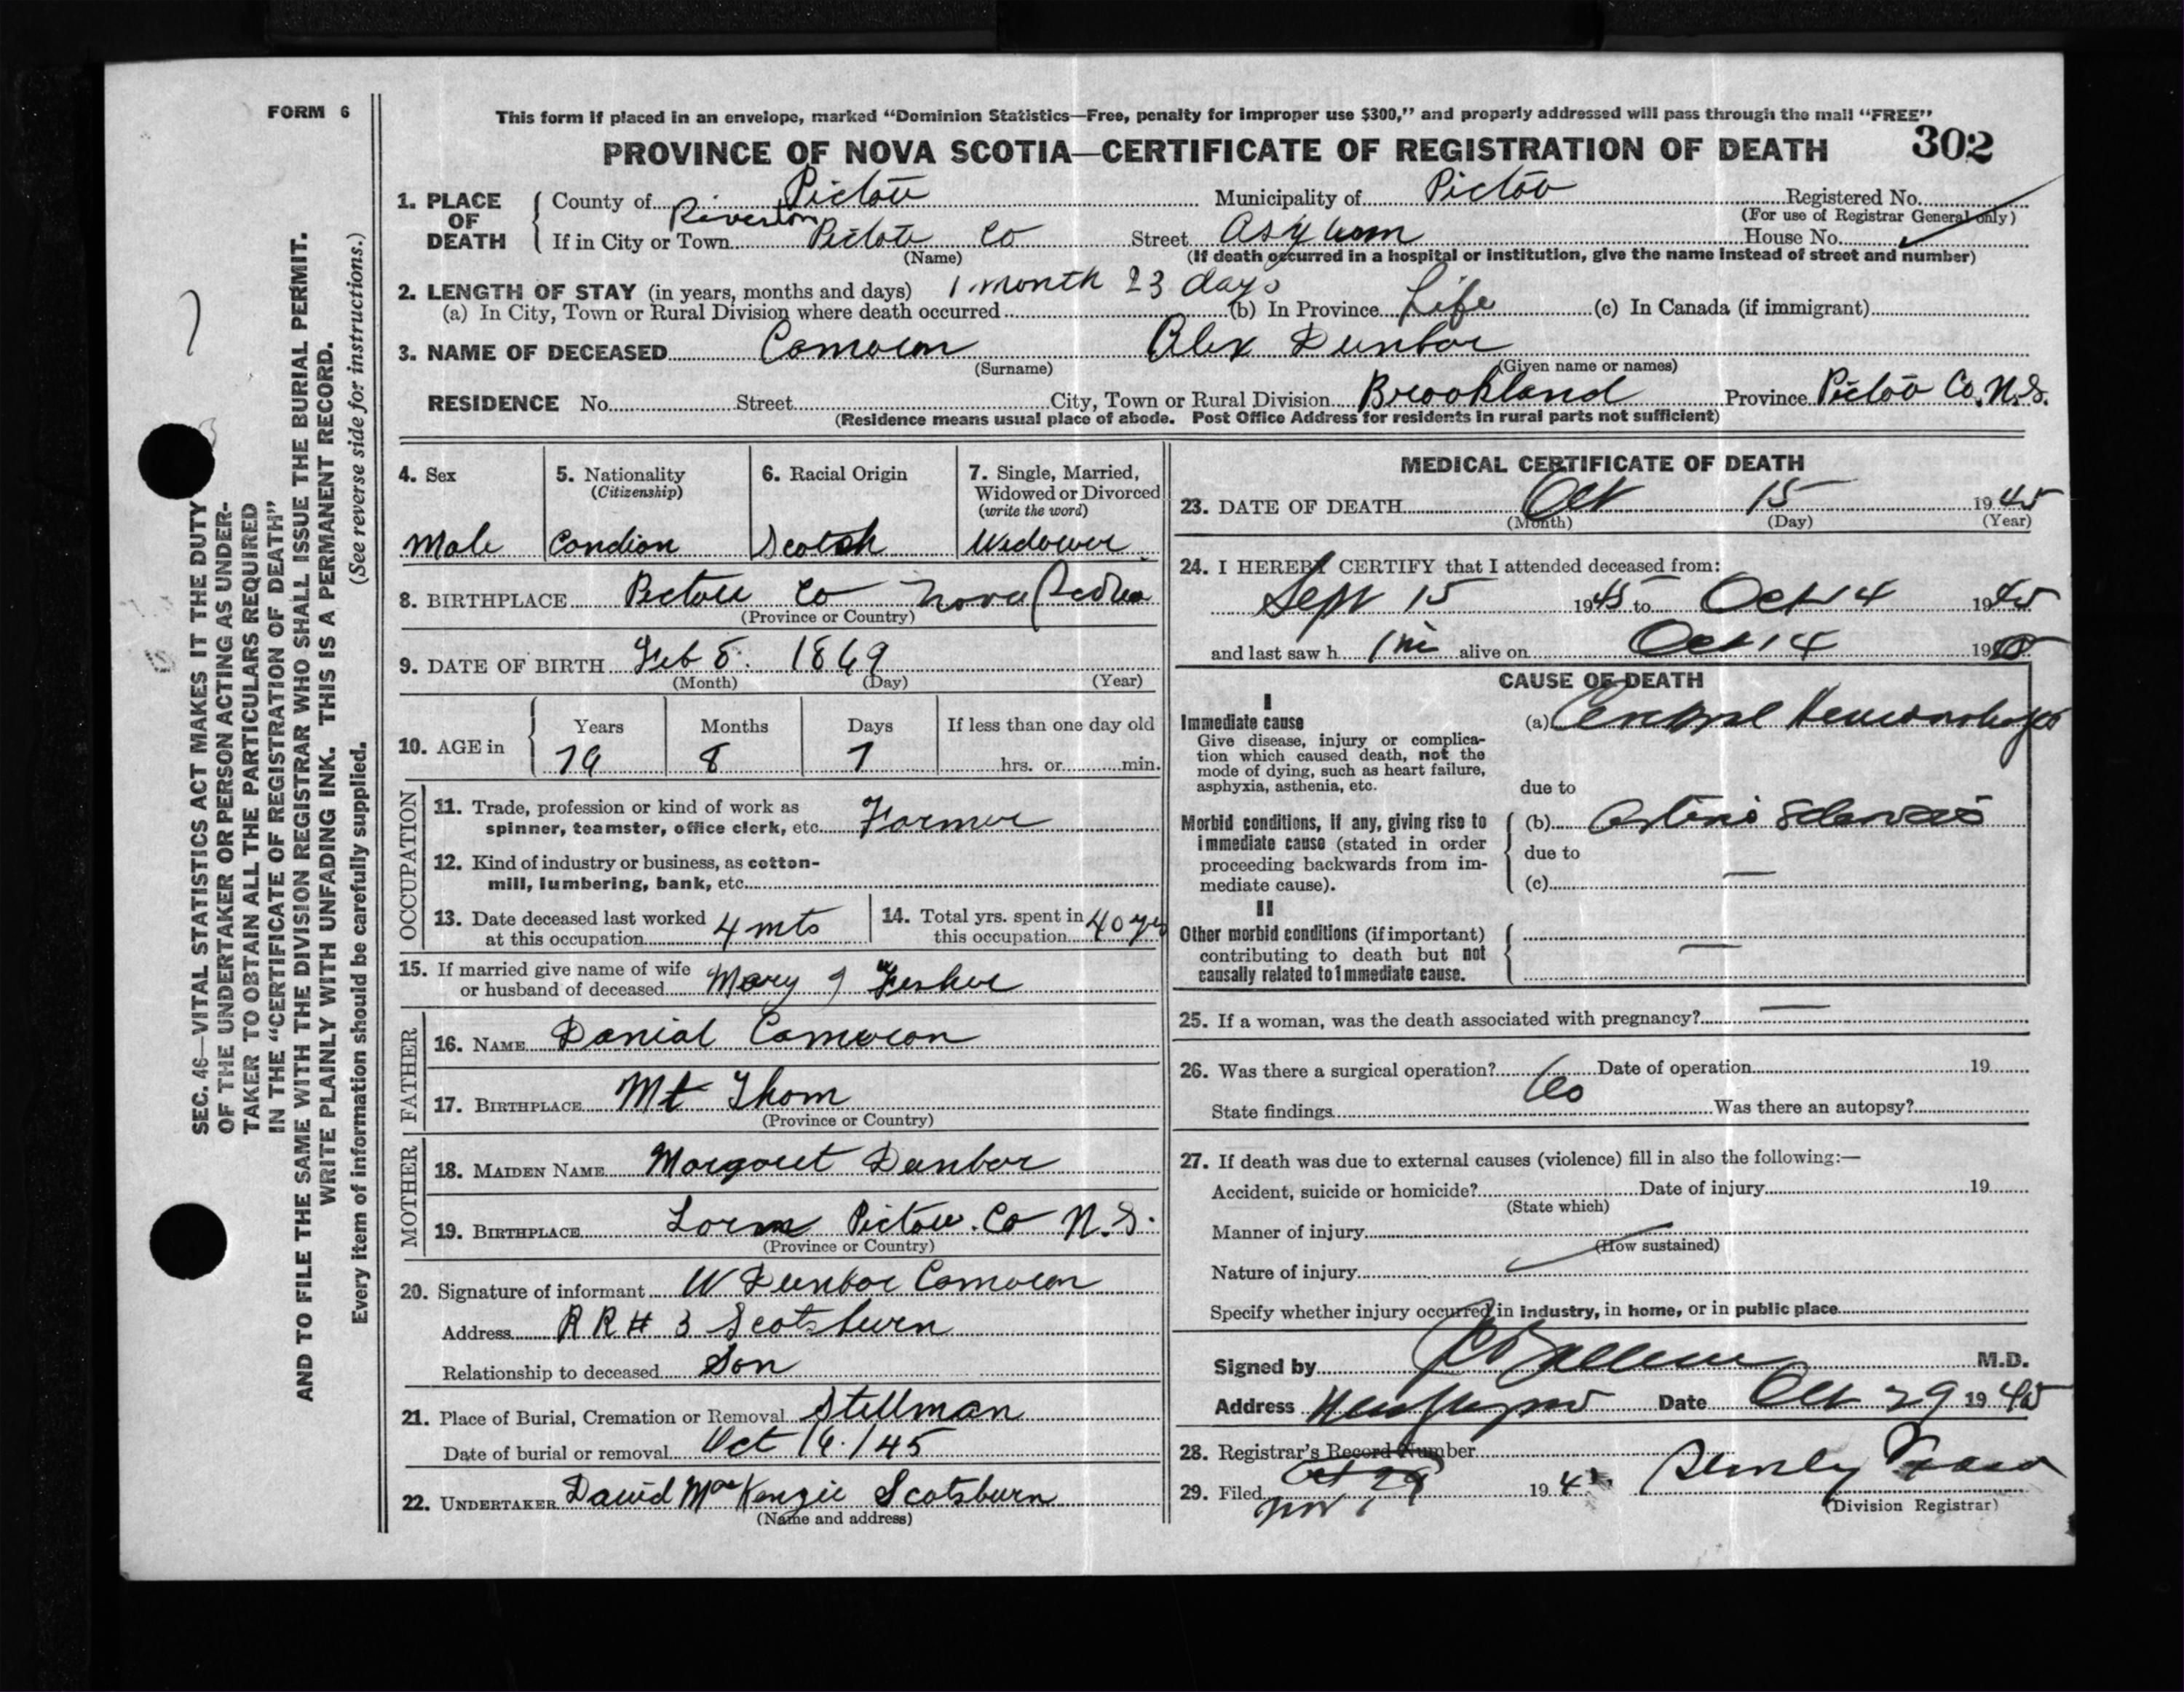 FORM 6
This form if placed in an envelope, marked “Dominion Statistics—Free, penalty for improper use $300,” and properly addressed will pass through the mail “FREE”
PROVINCE OF NOVA SCOTIA—CERTIFICATE OF REGISTRATION OF DEATH 302
1. PLACE OF DEATH
County of Pictou Municipality of Pictou Registered No.
(For use of Registrar General only)
Riverton
If in City or Town Pictou Co Street Asylum House No.
(Name) (If death occurred in a hospital or institution, give the name instead of street and number)
2. LENGTH OF STAY (in years, months and days) 1 month 23 days
(a) In City, Town or Rural Division where death occurred (b) In Province Life (c) In Canada (if immigrant)
3. NAME OF DECEASED Cameron Alex Dunbar
(Surname) (Given name or names)
RESIDENCE No. Street City, Town or Rural Division Brookland Province Pictou Co. N.S.
(Residence means usual place of abode. Post Office Address for residents in rural parts not sufficient)
4. Sex
Male
5. Nationality
(Citizenship)
Candian
6. Racial Origin
Scotch
7. Single, Married,
Widowed or Divorced
(write the word)
Widower
8. BIRTHPLACE Pictou Co Nova Scotia
(Province or Country)
9. DATE OF BIRTH Feb 8. 1869
(Month) (Day) (Year)
10. AGE in
Years Months Days If less than one day old
8 7 hrs. or min.
OCCUPATION
11. Trade, profession or kind of work as
spinner, teamster, office clerk, etc. Farmer
12. Kind of industry or business, as cotton-
mill, lumbering, bank, etc.
13. Date deceased last worked
at this occupation 4 mts
14. Total yrs. spent in
this occupation 40 yrs
15. If married give name of wife
or husband of deceased Mary J
FATHER
16. NAME Danial Cameron
17. BIRTHPLACE Mt Thom
(Province or Country)
MOTHER
18. MAIDEN NAME Margaret Dunbar
19. BIRTHPLACE Lorne Pictou. Co N.S.
(Province or Country)
20. Signature of informant W Dunbar Cameron
Address R R # 3 Scotsburn
Relationship to deceased Son
21. Place of Burial, Cremation or Removal Stillman
Date of burial or removal Oct 16/45
22. UNDERTAKER David MacKenzie Scotsburn
(Name and address)
MEDICAL CERTIFICATE OF DEATH
23. DATE OF DEATH Oct 15 1945
(Month) (Day) (Year)
24. I HEREBY CERTIFY that I attended deceased from:
Sept 15 1945 to Oct 14 1945
and last saw h im alive on Oct 14 19
CAUSE OF DEATH
I
Immediate cause
Give disease, injury or complica-
tion which caused death, not the
mode of dying, such as heart failure,
asphyxia, asthenia, etc.
(a) Cerebral Hemorrhage
due to
Morbid conditions, if any, giving rise to
immediate cause (stated in order
proceeding backwards from im-
mediate cause).
(b) Arterio Sclerosis
due to
(c) —
II
Other morbid conditions (if important)
contributing to death but not
causally related to immediate cause.
—
25. If a woman, was the death associated with pregnancy? —
26. Was there a surgical operation? Date of operation 19
State findings Was there an autopsy?
27. If death was due to external causes (violence) fill in also the following:—
Accident, suicide or homicide? Date of injury 19
(State which)
Manner of injury
(How sustained)
Nature of injury
Specify whether injury occurred in industry, in home, or in public place
Signed by M.D.
Address New Glasgow Date Oct 29 1945
28. Registrar's Record Number
29. Filed Oct 29 194
Nov
(Division Registrar)
SEC. 46—VITAL STATISTICS ACT MAKES IT THE DUTY
OF THE UNDERTAKER OR PERSON ACTING AS UNDER-
TAKER TO OBTAIN ALL THE PARTICULARS REQUIRED
IN THE “CERTIFICATE OF REGISTRATION OF DEATH”
AND TO FILE THE SAME WITH THE DIVISION REGISTRAR WHO SHALL ISSUE THE BURIAL PERMIT.
WRITE PLAINLY WITH UNFADING INK. THIS IS A PERMANENT RECORD.
Every item of information should be carefully supplied. (See reverse side for instructions.)